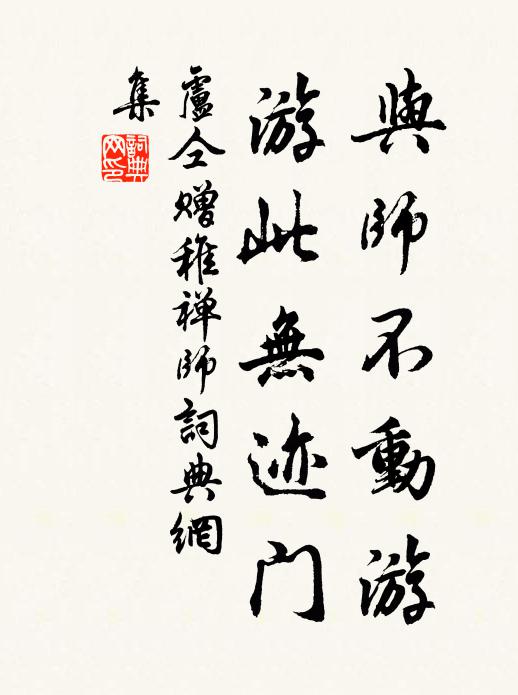 與師不動游
游此無迹门
盧仝贈稚禅师詞典網
集
詞典网印